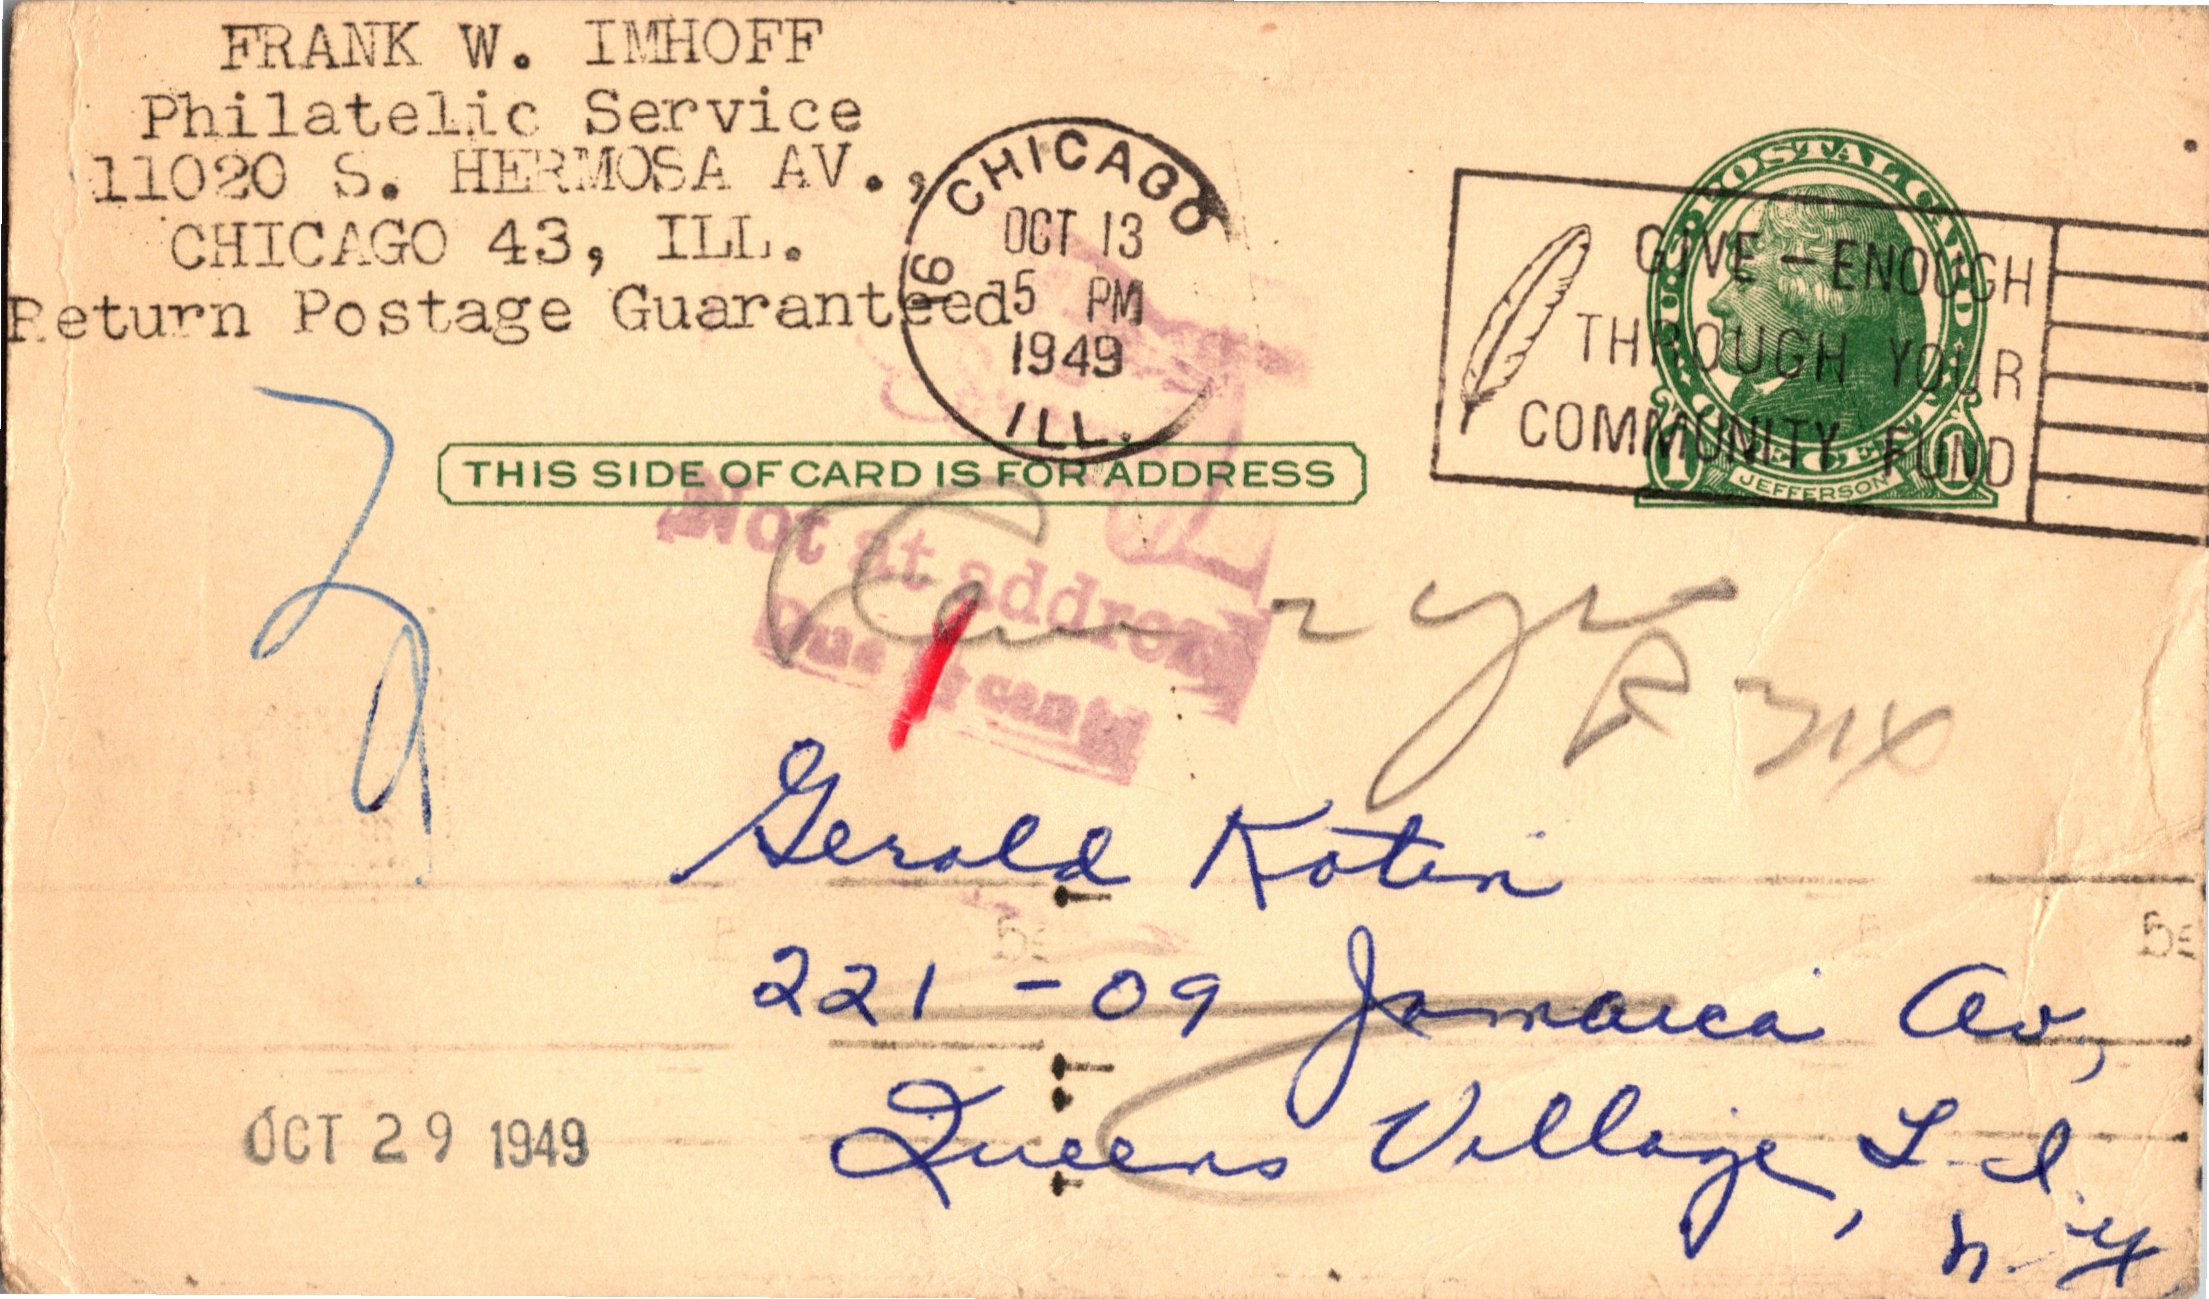 FRANK W. IMHOFF
Philatelic Service
11020 S. HERMOSA AV.,
CHICAGO 43, ILL.
Return Postage Guaranteed
CHICAGO
16
OCT 13
5 PM
1949
ILL.
U.S. POSTAL CARD
GIVE - ENOUGH
THROUGH YOUR
COMMUNITY FUND
1 ONE CENT 1
JEFFERSON
THIS SIDE OF CARD IS FOR ADDRESS
Not at address
Due cents
Gerald Kotin
221-09 Jamaica Av,
Queens Village, L.I.
N.Y.
OCT 29 1949